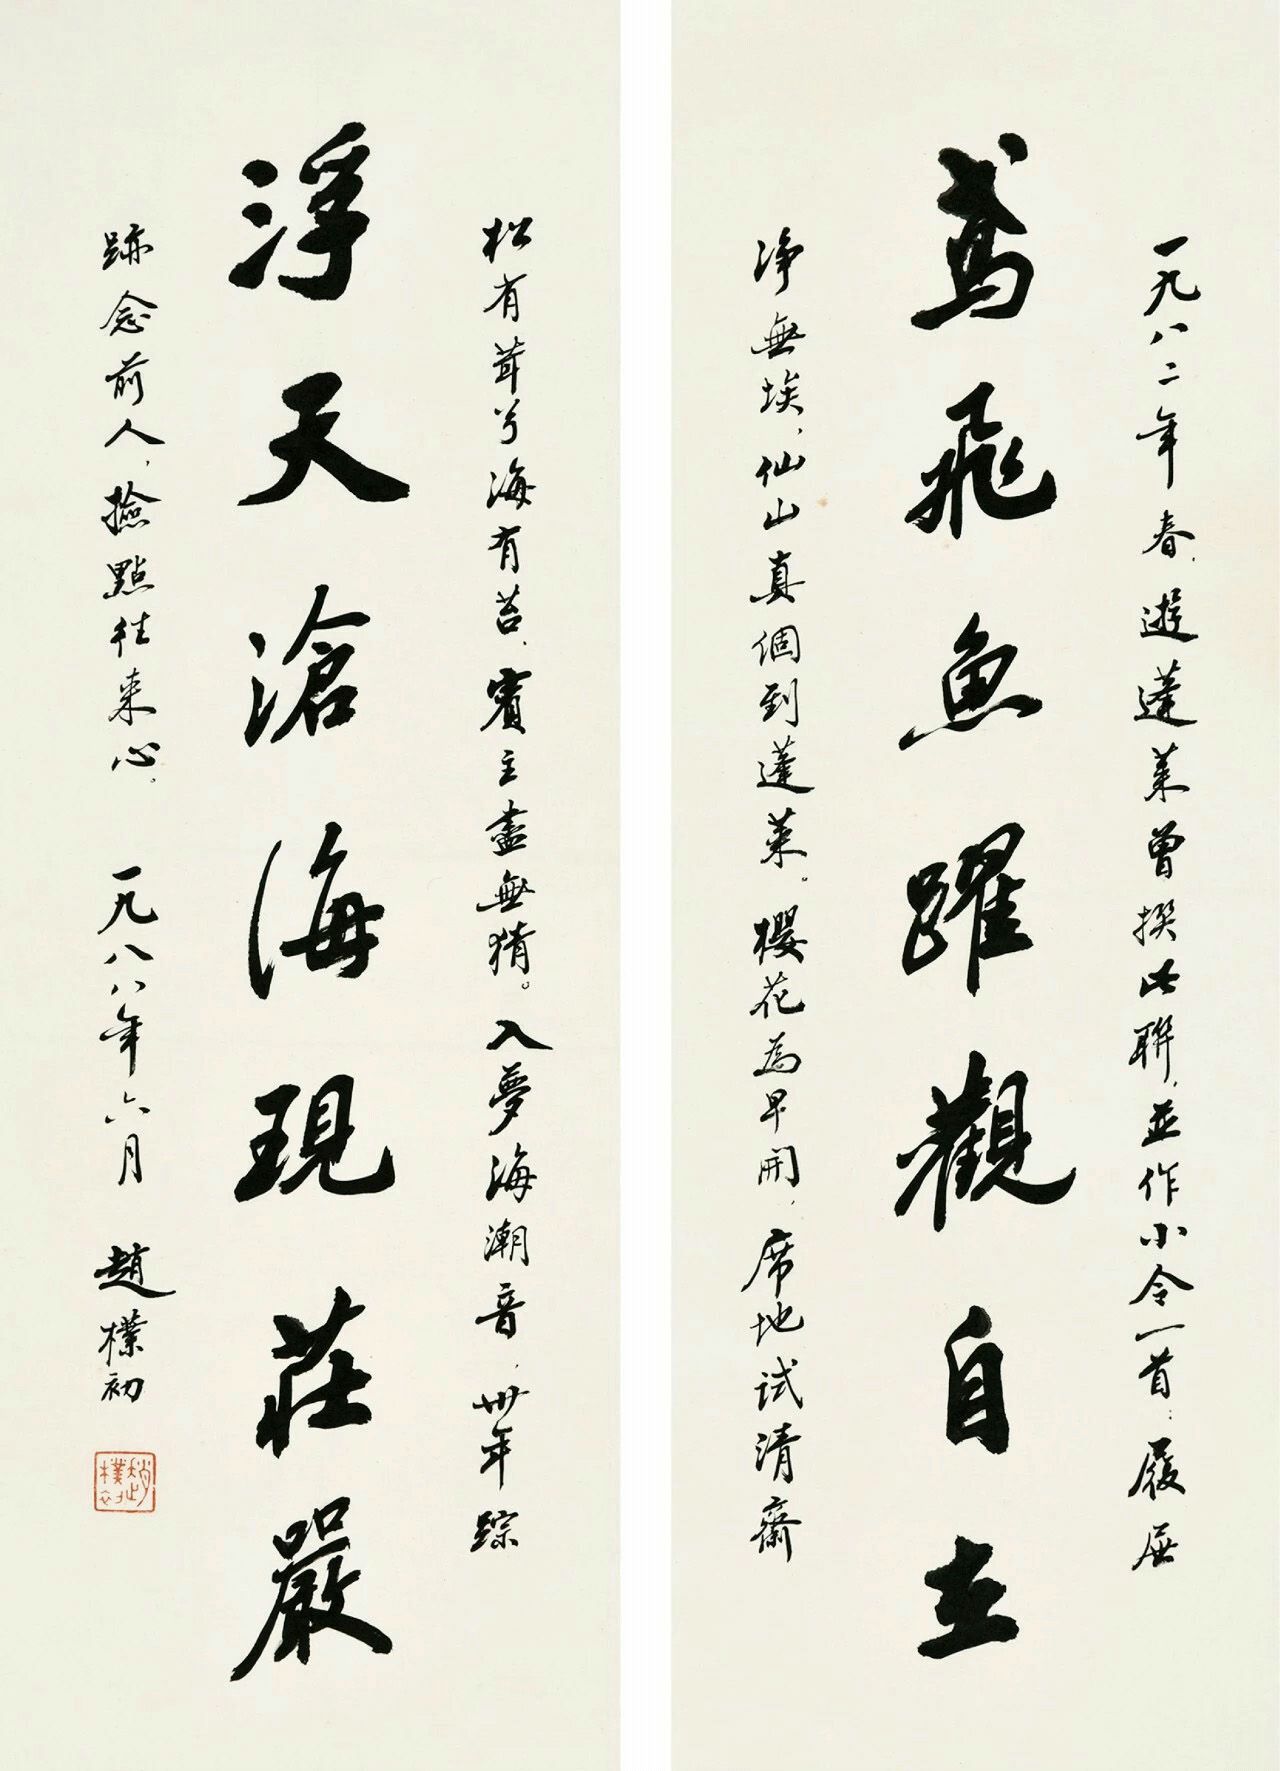 一九八二年春,遊蓬萊曾撰此聯,並作小令一首:履
鳶飛魚躍觀自在
淨無埃,仙山真個到蓬萊。櫻花為早開,席地試清齋
松有茸兮海有苔,賓主盡無猜。入夢海潮音,卅年踪
浮天滄海現莊嚴
跡念前人,撿點往來心。一九八八年六月 趙樸初
趙樸初